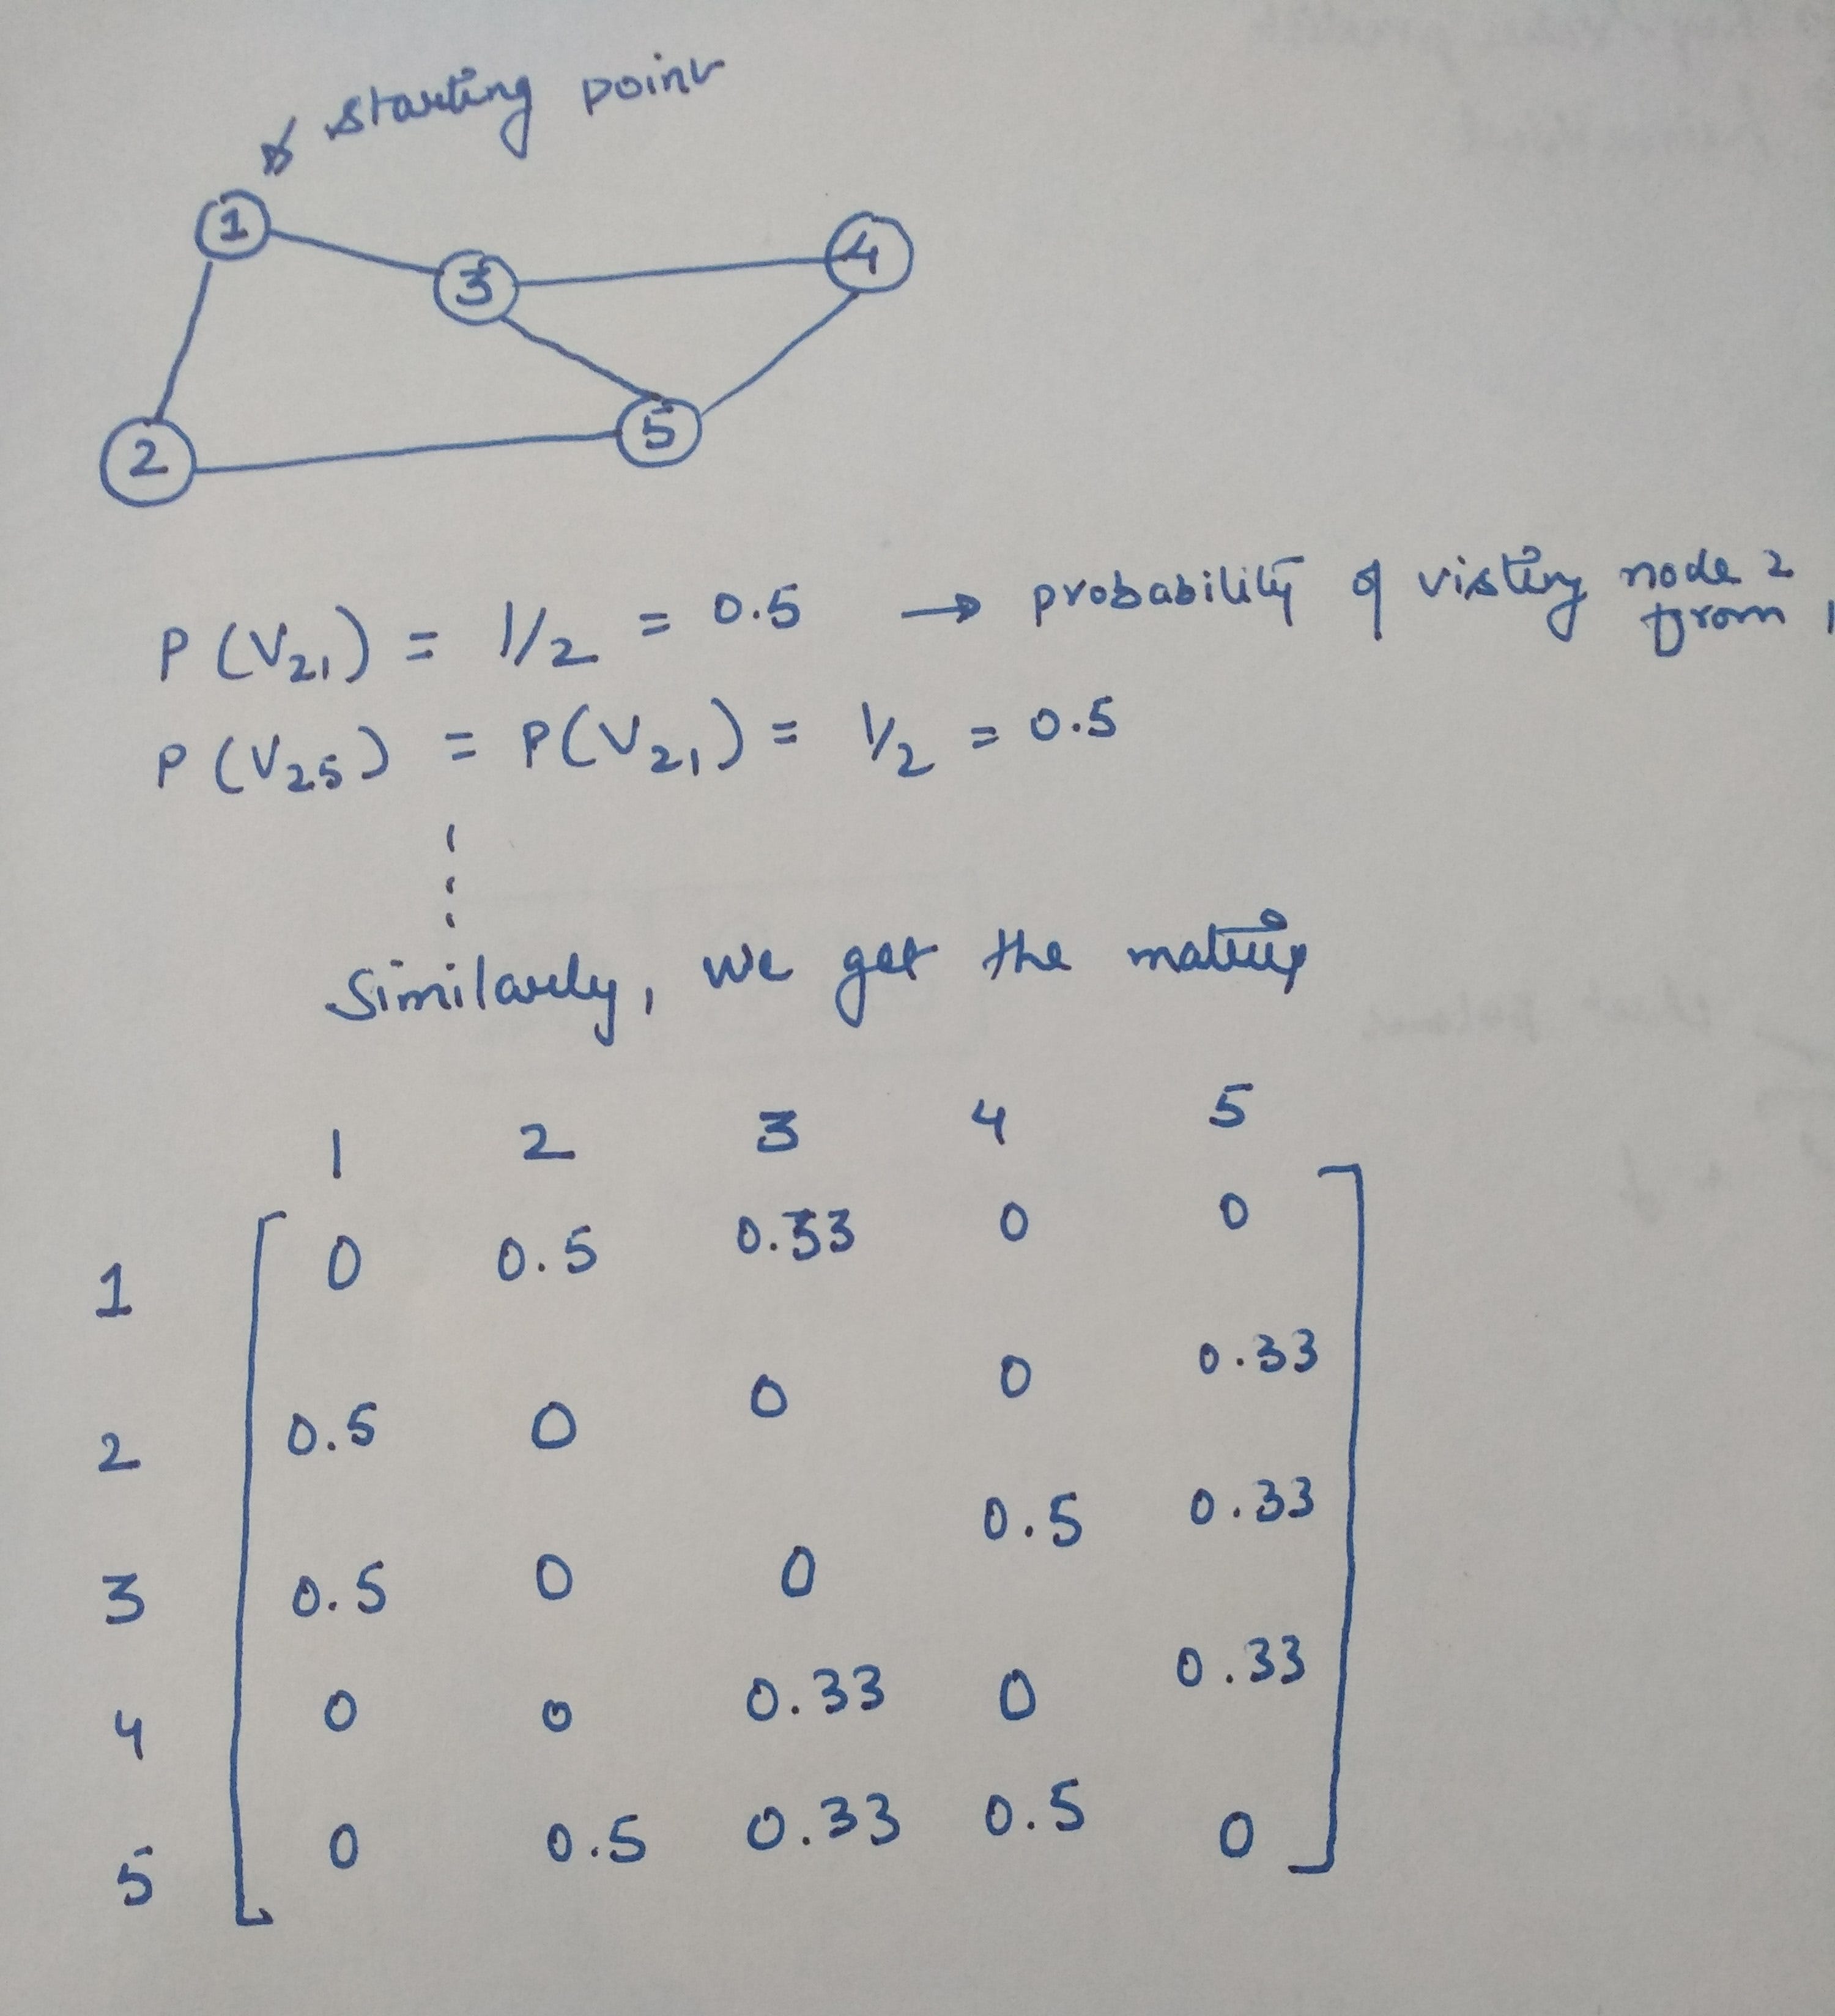 starting point
1
3
4
2
5
P(V₂₁) = 1/2 = 0.5 → probability of visting node 2 from 1
P(V₂₅) = P(V₂₁) = 1/2 = 0.5
Similarly, we get the matrix
1 2 3 4 5
1 0 0.5 0.33 0 0
2 0.5 0 0 0 0.33
3 0.5 0 0 0.5 0.33
4 0 0 0.33 0 0.33
5 0 0.5 0.33 0.5 0